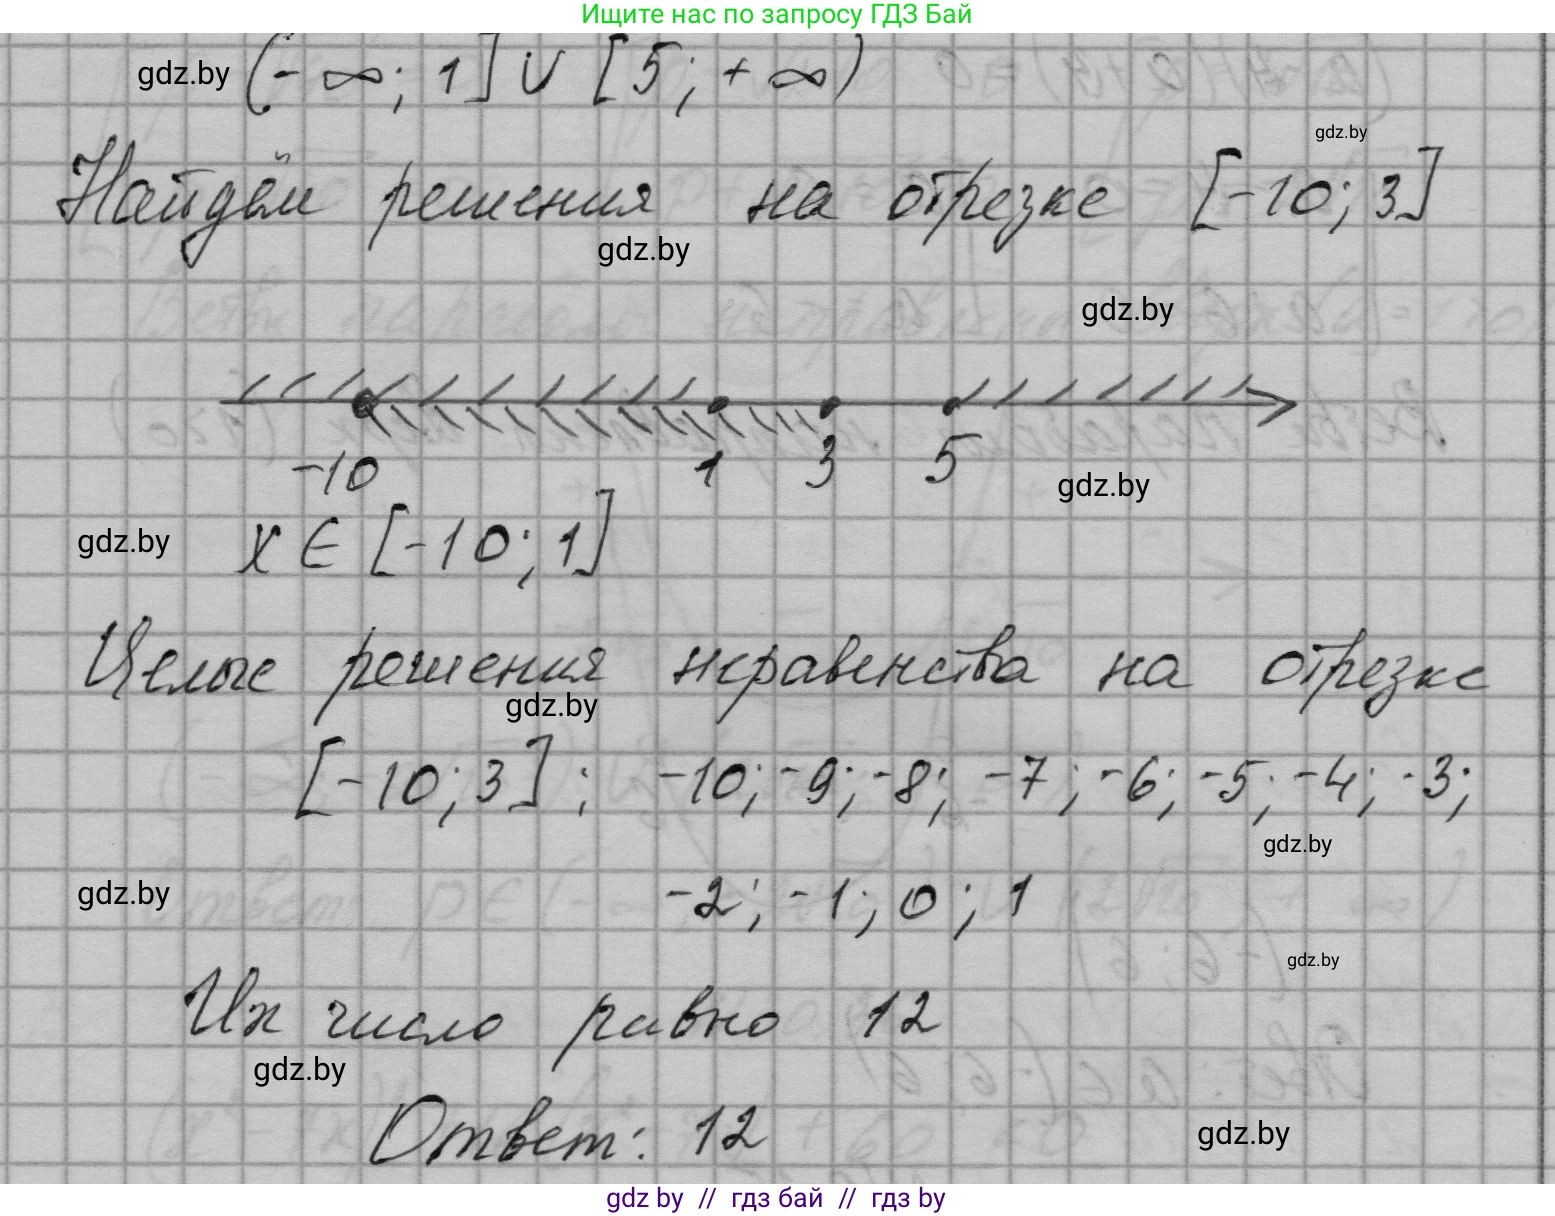 Ищите нас по запросу ГДЗ Бай
gdz.by (-∞; 1] ∪ [5; +∞)
gdz.by
Найдём решения на отрезке [-10; 3]
gdz.by
gdz.by
-10 1 3 5
gdz.by
gdz.by x ∈ [-10; 1]
Целые решения неравенства на отрезке
gdz.by
[-10; 3]; -10; -9; -8; -7; -6; -5; -4; -3;
gdz.by
gdz.by -2; -1; 0; 1
gdz.by
Их число равно 12
gdz.by
Ответ: 12
gdz.by
gdz by // гдз бай // гдз by